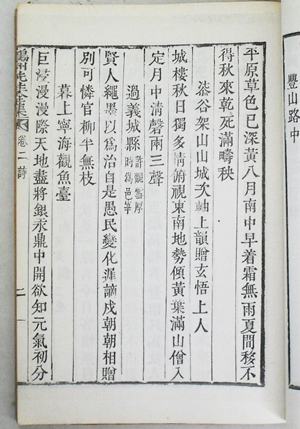 豐山路中
平原草色已深黃八月南中早着霜無雨夏間移不
得秋來乾死滿疇秧
茶谷架山山城次軸上韻贈玄悟上人
城樓秋日獨多情俯視東南地勢傾黃葉滿山僧入
定月中清磬兩三聲
過義城縣
賢人繩墨以爲治自是愚民變化遲謫戍朝朝相贈
別可憐官柳半無枝
暮上寧海觀魚臺
巨浸漫漫際天地盡將銀汞鼎中開欲知元氣初分
先生文集
卷二
詩
二